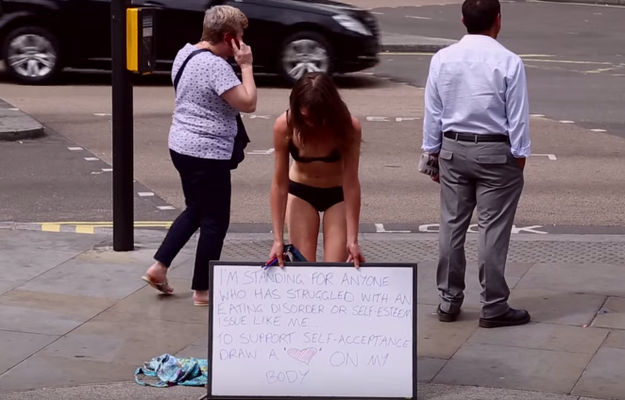 LOOK
I'M STANDING FOR ANYONE
WHO HAS STRUGGLED WITH AN
EATING DISORDER OR SELF-ESTEEM
ISSUE LIKE ME.
TO SUPPORT SELF-ACCEPTANCE
DRAW A '♡' ON MY
BODY.